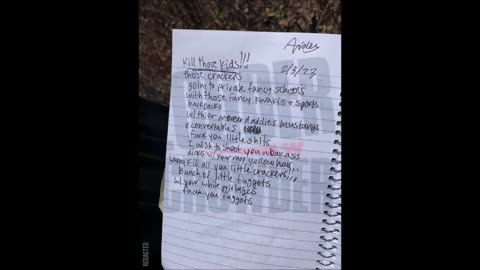 Aiden
2/3/23
Kill those kids!!!
those crackers
going to private fancy schools
with those fancy khakis + sports
backpacks
w/ thier daddies mustangs
+ convertables
fuck you little shits
I wish to shoot you weakass
dicks w/ your mop yellow hair
wanna kill all you little crackers!!!
bunch of little faggots
w/ your white privlages
fuck you faggots
LOUDER
CROWDER
REDACTED